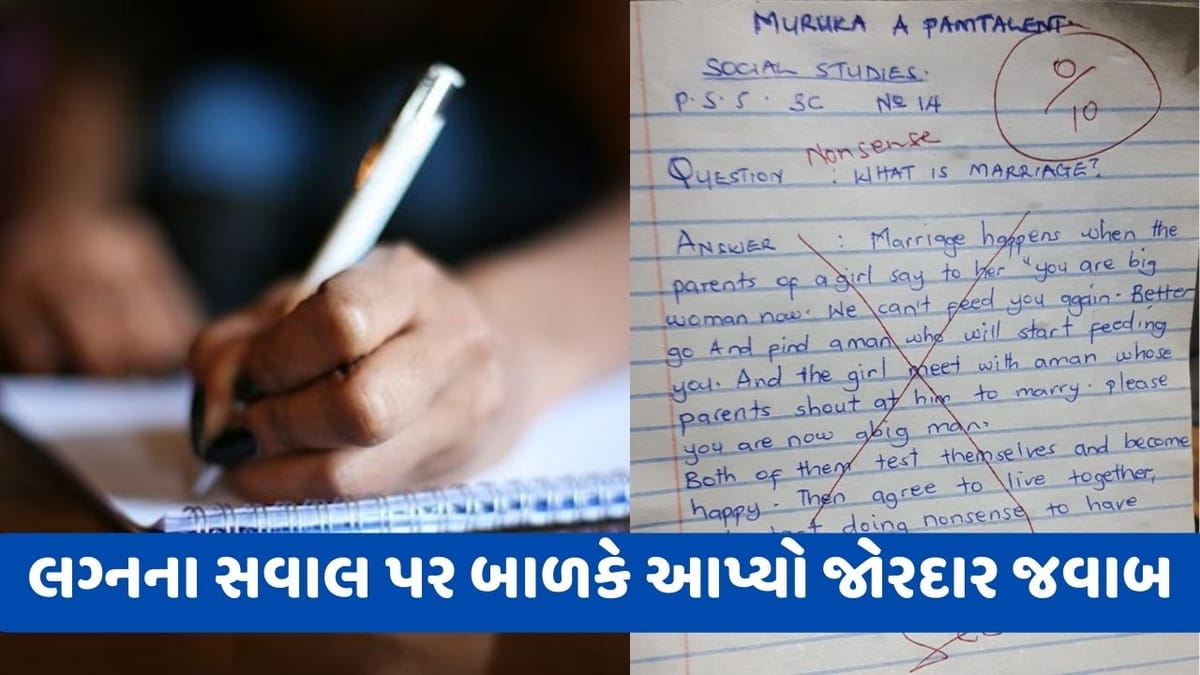 MURUKA A PAMTALENT.
SOCIAL STUDIES.
P.S.S. 3C No 14
0/10
Nonsense
QUESTION : WHAT IS MARRIAGE?
ANSWER : Marriage happens when the
parents of a girl say to her "you are big
woman now. We can't feed you again. Better
go And find a man who will start feeding
you. And the girl meet with aman whose
parents shout at him to marry. please
you are now abig man.
Both of them test themselves and become
happy. Then agree to live together,
doing nonsense to have
લગ્નના સવાલ પર બાળકે આપ્યો જોરદાર જવાબ